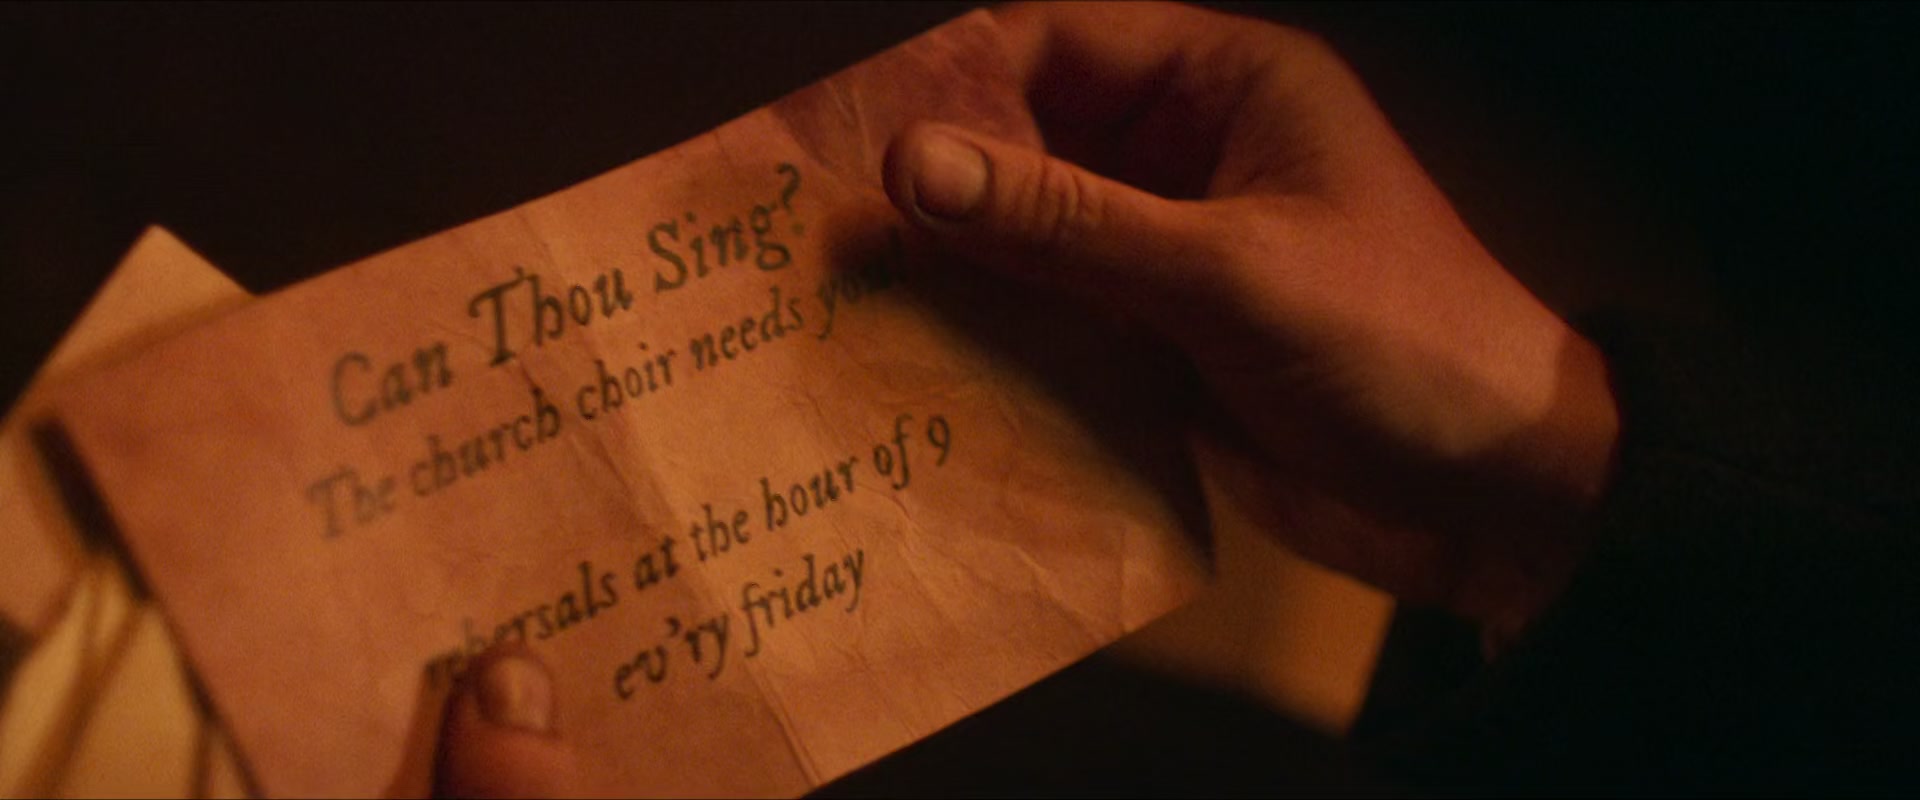 Can Thou Sing?
The church choir needs you!
rehersals at the hour of 9
ev'ry friday